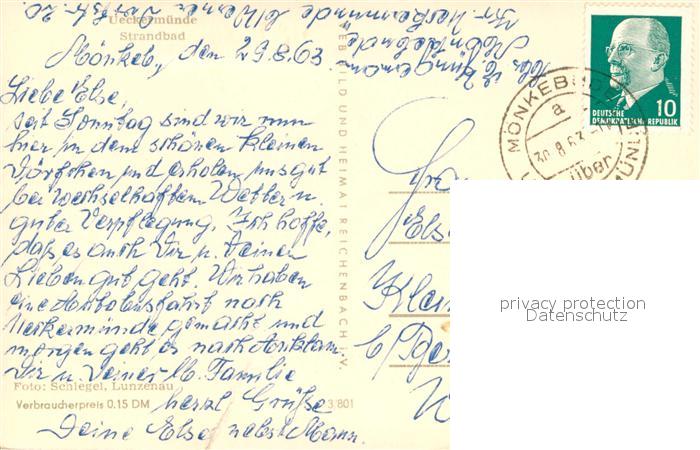 Ueckermünde
Strandbad
Mönkeb., den 29.8.63.
Liebe Else,
seit Sonntag sind wir nun
hier in dem schönen kleinen
Dörfchen und erholen uns gut
bei wechselhaftem Wetter u.
guter Verpflegung. Ich hoffe,
daß es auch Dir u. Deinen
Lieben gut geht. Wir haben
eine Autobusfahrt nach
Ueckermünde gemacht und
morgen geht es nach Anklam.
Dir u. Deiner lb. Familie
Foto: Schlegel, Lunzenau
herzl. Grüße
Verbraucherpreis 0.15 DM
3'801
Deine Else nebst Mann.
BILD UND HEIMAT REICHENBACH i. V.
Kr. Ueckermünde
Mönkebude
MÖNKEBUDE
a
30.8.63
über
10
DEUTSCHE
DEMOKRATISCHE REPUBLIK
Els
Klein
privacy protection
Datenschutz